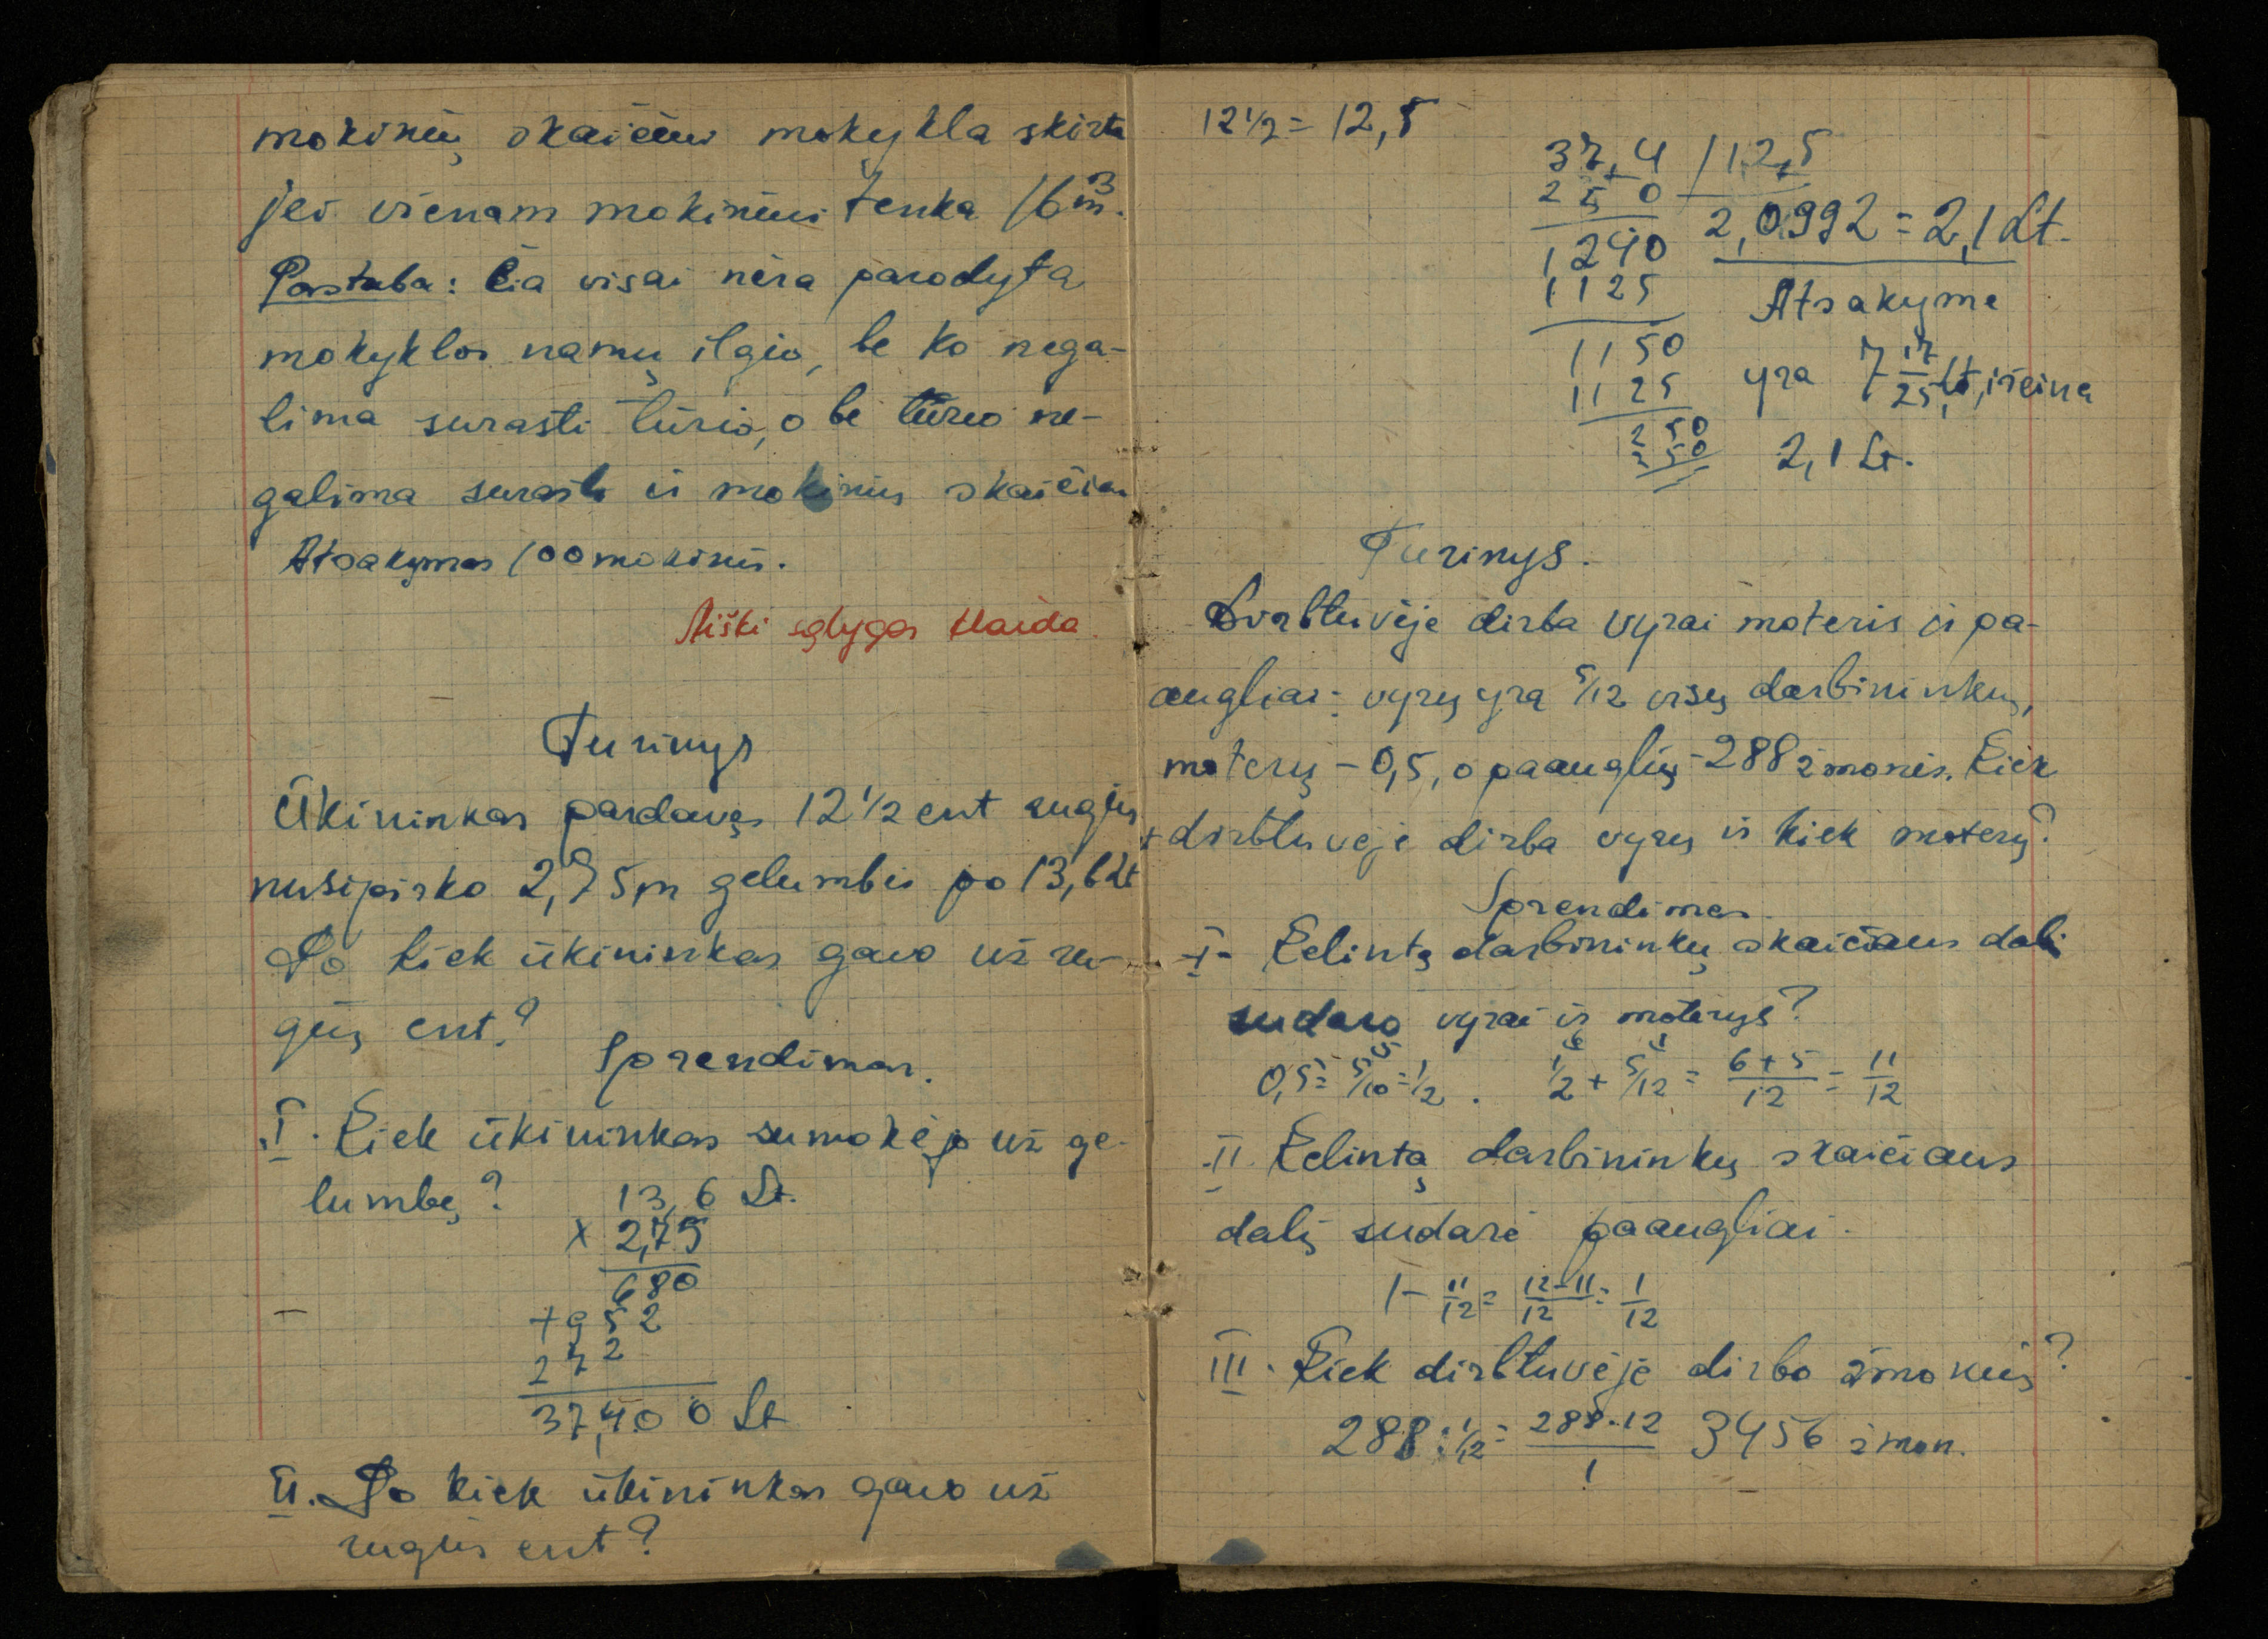 mokinių skaičiui mokykla skirta
jei vienam mokiniui tenka 16 m³.
Pastaba: čia visai nėra parodyta
mokyklos namų ilgio, be ko nega-
lima surasti tūrio, o be tūrio ne-
galima surasti ir mokinių skaičiau
Atsakymas 100 mokinių.
Aiški sąlygos klaida
Turinys
Ūkininkas pardavęs 12 1/2 cnt rugių
nusipirko 2,75 m gelumbės po 13,6 Lt
Po kiek ūkininkas gavo už ru-
gių cnt.?
Sprendimas.
I. Kiek ūkininkas sumokėjo už ge-
lumbę?
13,6 Lt.
× 2,75
680
+952
272
37,400 Lt
II. Po kiek ūkininkas gavo už
rugius cnt?
12 1/2 = 12,5
37,4 / 12,5
250
2,0992 = 2,1 Lt.
1240
1125
Atsakyme
1150
yra 7 17/25 Lt, išeina
1125
250
250
2,1 Lt.
Turinys.
Dirbtuvėje dirba vyrai moteris ir pa-
augliai: vyrų yra 5/12 visų darbininkų,
moterų – 0,5, o paauglių – 288 žmonės. Kiek
dirbtuvėje dirba vyrų ir kiek moterų?
Sprendimas.
I- Kelintą darbininkų skaičiaus dalį
sudaro vyrai ir moterys?
0,5 = 5/10 = 1/2. 1/2 + 5/12 = 6+5/12 = 11/12
II. Kelintą darbininkų skaičiaus
dalį sudarė paaugliai.
1 - 11/12 = 12-11/12 = 1/12
III. Kiek dirbtuvėje dirbo žmonių?
288 : 1/12 = 288·12/1 3456 žmon.